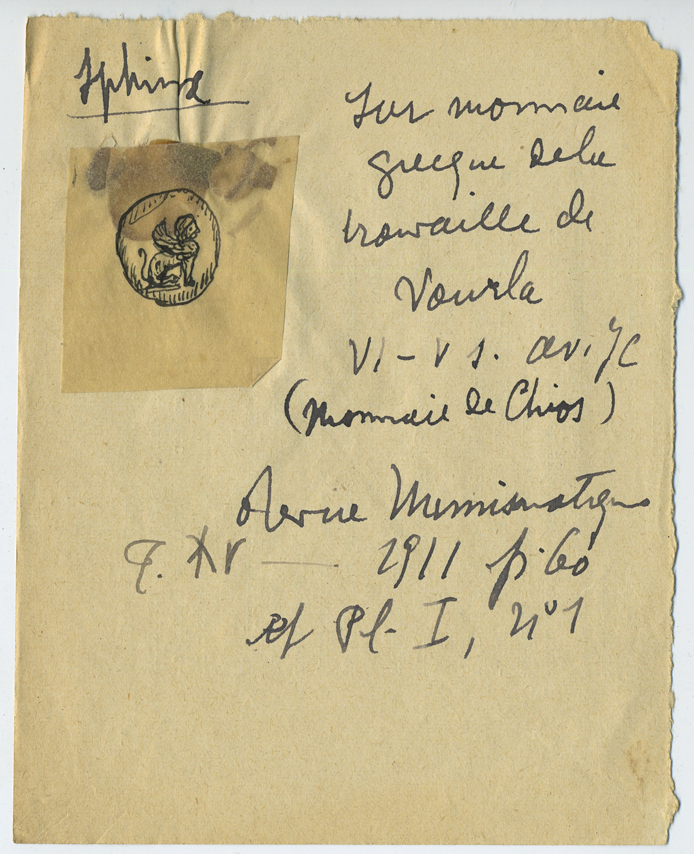 Sphinx
sur monnaie
grecque de la
trouvaille de
Vourla
VI-V s. av. JC
(monnaie de Chios)
Revue Numismatique
T. XV — 1911 p. 60
et Pl. I, n° 1